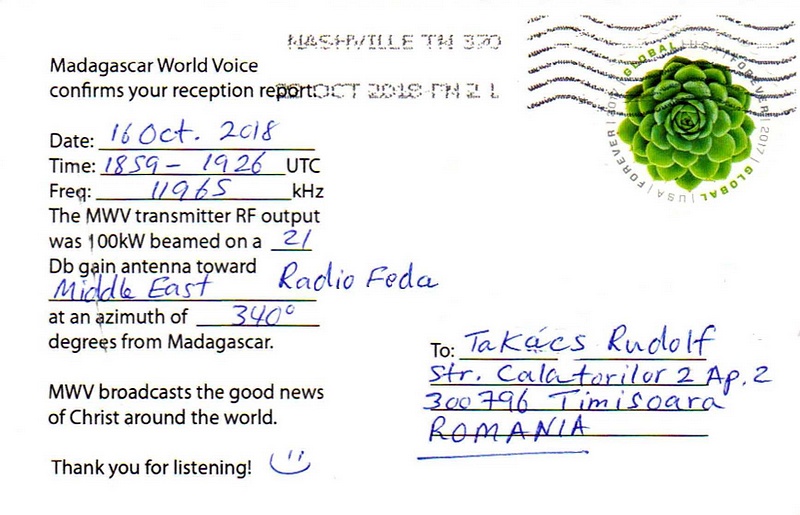 NASHVILLE TN 370
22 OCT 2018 PM 2 L
GLOBAL | USA | FOREVER | 2017 | GLOBAL | USA | FOREVER | 2017
Madagascar World Voice
confirms your reception report.
Date: 16 Oct. 2018
Time: 1859 – 1926 UTC
Freq: 11965 kHz
The MWV transmitter RF output
was 100kW beamed on a 21
Db gain antenna toward
Middle East Radio Feda
at an azimuth of 340°
degrees from Madagascar.
MWV broadcasts the good news
of Christ around the world.
Thank you for listening!
To: Takács Rudolf
Str. Calatorilor 2 Ap. 2
300796 Timisoara
ROMANIA